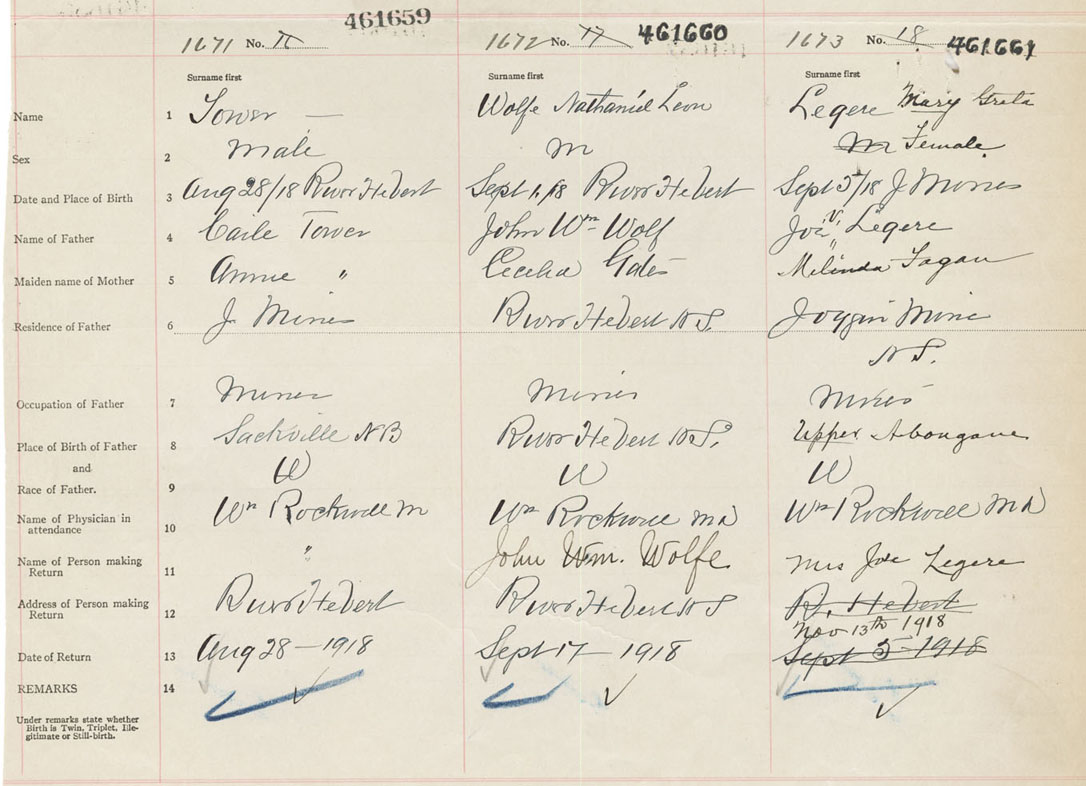 461659
1671 No.
1672 No. 17 461660
1673 No. 18 461661
Surname first
Surname first
Surname first
Name 1 Tower — Wolfe Nathaniel Leon Legere Mary Greta
Sex 2 Male M M Female
Date and Place of Birth 3 Aug 28/18 River Hebert Sept 1/18 River Hebert Sept 5/18 J Mines
Name of Father 4 Tower John Wm Wolf Joe V. Legere
Maiden name of Mother 5 Annie " Cecelia Melinda Fagan
Residence of Father 6 J Mines River Hebert N S. Joggin Mine
N S.
Occupation of Father 7 Miner
Place of Birth of Father 8 Sackville NB River Hebert N S. Upper Abougane
and
W W W
Race of Father. 9
Name of Physician in
attendance 10 Wm Rockwell M Wm Rockwell MD Wm Rockwell MD
Name of Person making
Return 11 " John Wm. Wolfe. Mrs Joe Legere
Address of Person making
Return 12 River Hebert River Hebert N S R. Hebert
Nov 13th 1918
Date of Return 13 Aug 28 – 1918 Sept 17 – 1918 Sept 5 – 1918
REMARKS 14
Under remarks state whether
Birth is Twin, Triplet, Ille-
gitimate or Still-birth.